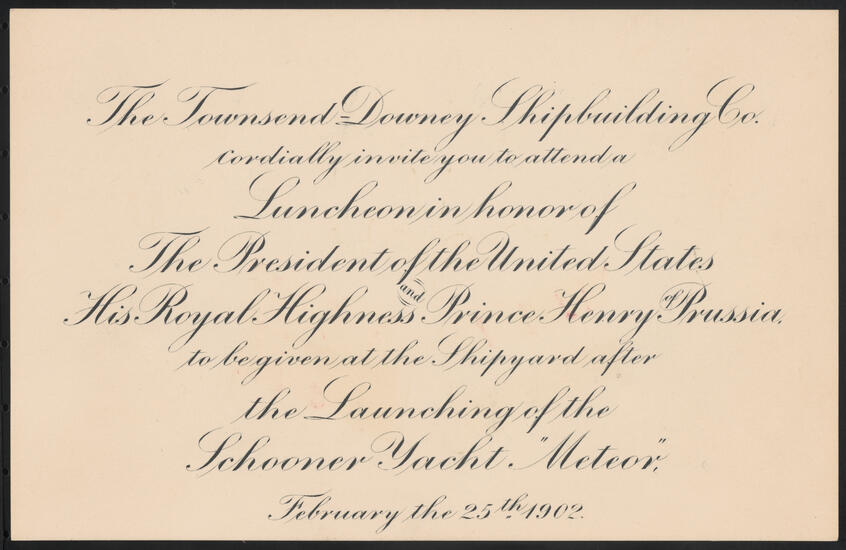 The Townsend=Downey Shipbuilding Co.
cordially invite you to attend a
Luncheon in honor of
The President of the United States
and
His Royal Highness Prince Henry of Prussia,
to be given at the Shipyard after
the Launching of the
Schooner Yacht "Meteor",
February the 25th 1902.